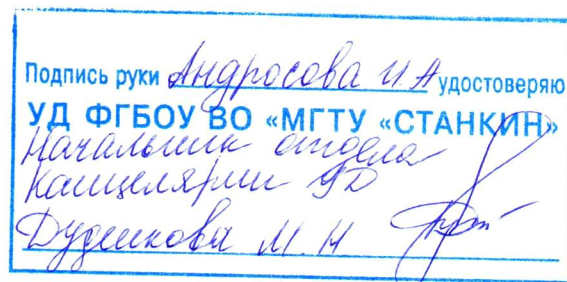 Подпись руки Андросова И А удостоверяю
УД ФГБОУ ВО «МГТУ «СТАНКИН»
Начальник отдела
канцелярии УД
Дуденкова М. Н